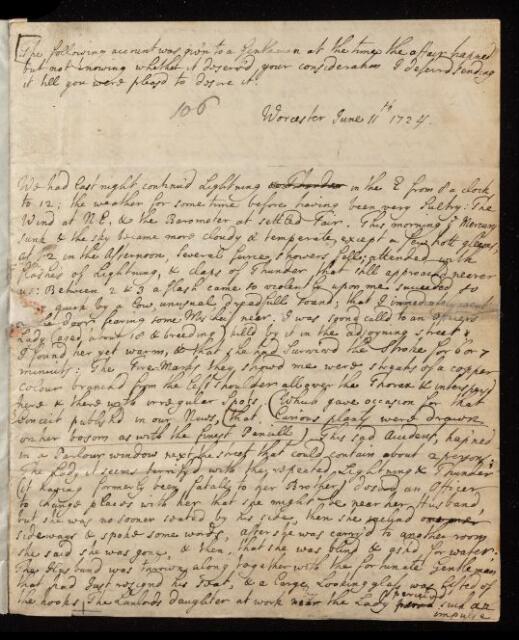 [The following account was given to a Gentleman at the time the affair happned
but not knowing whether it deserv'd your consideration I deferrd sending
it till you were pleasd to desire it.
106
Worcester June 11th 1724.
We had last night continu'd Lightning in the E from 8 a clock
to 12; the weather for some time before having been very Sultry: The
Wind at N E, & the Barometer at settled Fair. This morning ye Mercury
sunk & the sky became more cloudy & temperate, except a few hott gleams,
at 2 in the Afternoon, Several furious showers fell, attended with
Coruscs of Lightning, & claps of Thunder, that still approachd nearer
us: Between 2 & 3 a flash came so violent upon me succeeded so
quick by a low unusual dreadfull sound; that I immediately went
to the door fearing some Mischief near. I was soon calld to an Officers
Lady (aged about 18 & breeding) killd by it in the adjoyning street &
I found her yet warm, & that she had Surviv'd the Stroke for 6 or 7
minuits: The Fire-Marks they showd me were streaks of a copper
colour branchd from the left shoulder all over the Thorax & interspersd
here & there with irregular Spots. (Which gave occasion for that
conceit publishd in our News, (that Curious plants were drawn
on her bosom as with the finest Pencills)) This sad Accident, hapned
in a Parlour window next the street that could contain about 2 persons.
The Lady it seems terrify'd with the repeated Lightning & Thunder
(it having formerly been fatall to her Brother) desird an Officer
to change places with her that she might be near her Husband,
but she was no sooner seated by his side, then she reclynd
sideways & spoke some words, after she was carry'd to another room
she said she was gone, & then, that she was blind & askd for water.
The Husband was thrown along together with the fortunate Gentleman
that had just resignd his Seat, & a large Looking glass was lifted of
the hooks. The Lanlords daughter at work near the Lady perceivd such an
impulse